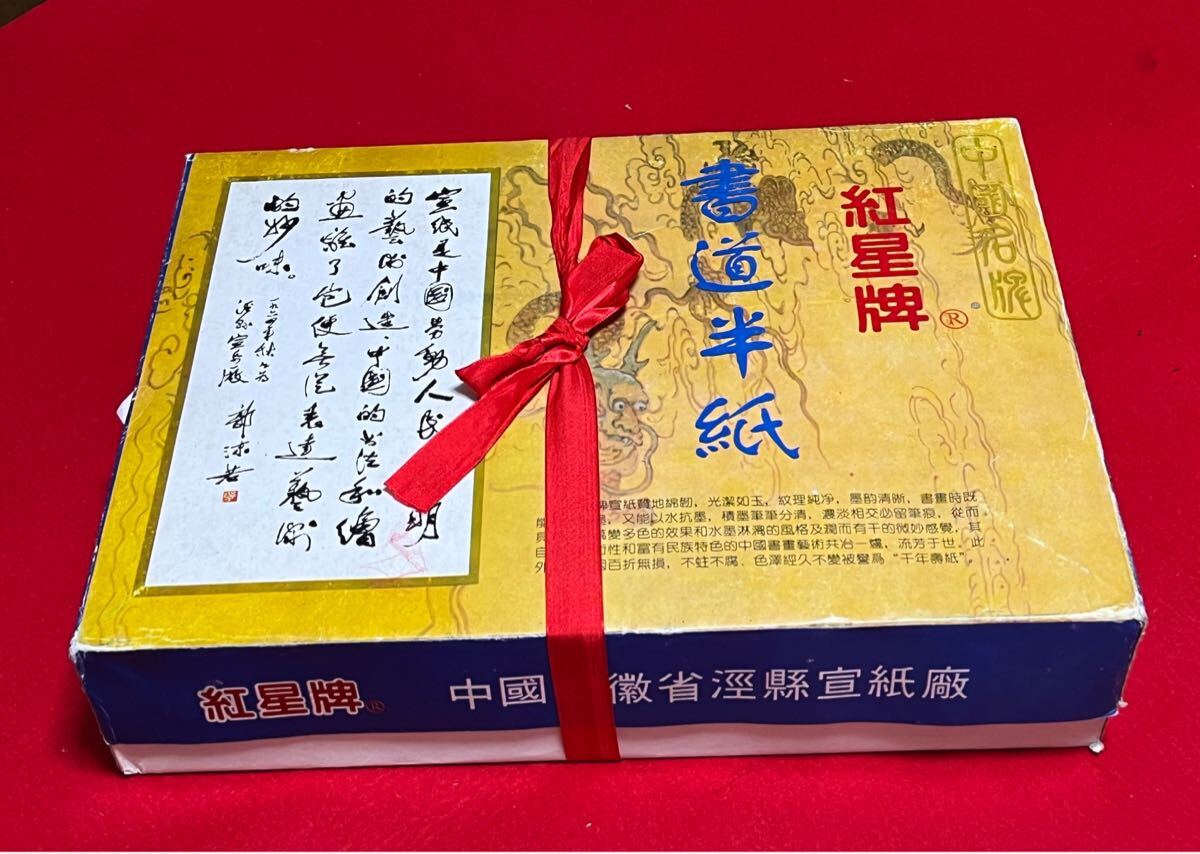 中國名牌
紅星牌®
書道半紙
宣紙是中國勞動人民 明
的藝術創造、中國的書法和繪
畫離了它便無從表達藝術
的妙味。
涇縣宣紙廠
郭沫若
宣紙質地綿韌，光潔如玉，紋理純净，墨韵清晰，書畫時既
，又能以水抗墨，積墨筆筆分清，濃淡相交必留筆痕，從而
萬變多色的效果和水墨淋漓的風格及潤而有干的微妙感覺，其
性和富有民族特色的中國書畫藝術共冶一爐，流芳于世。此
外 百折無損，不蛀不腐、色澤經久不變被譽爲“千年壽紙”。
紅星牌®
中國 徽省涇縣宣紙廠